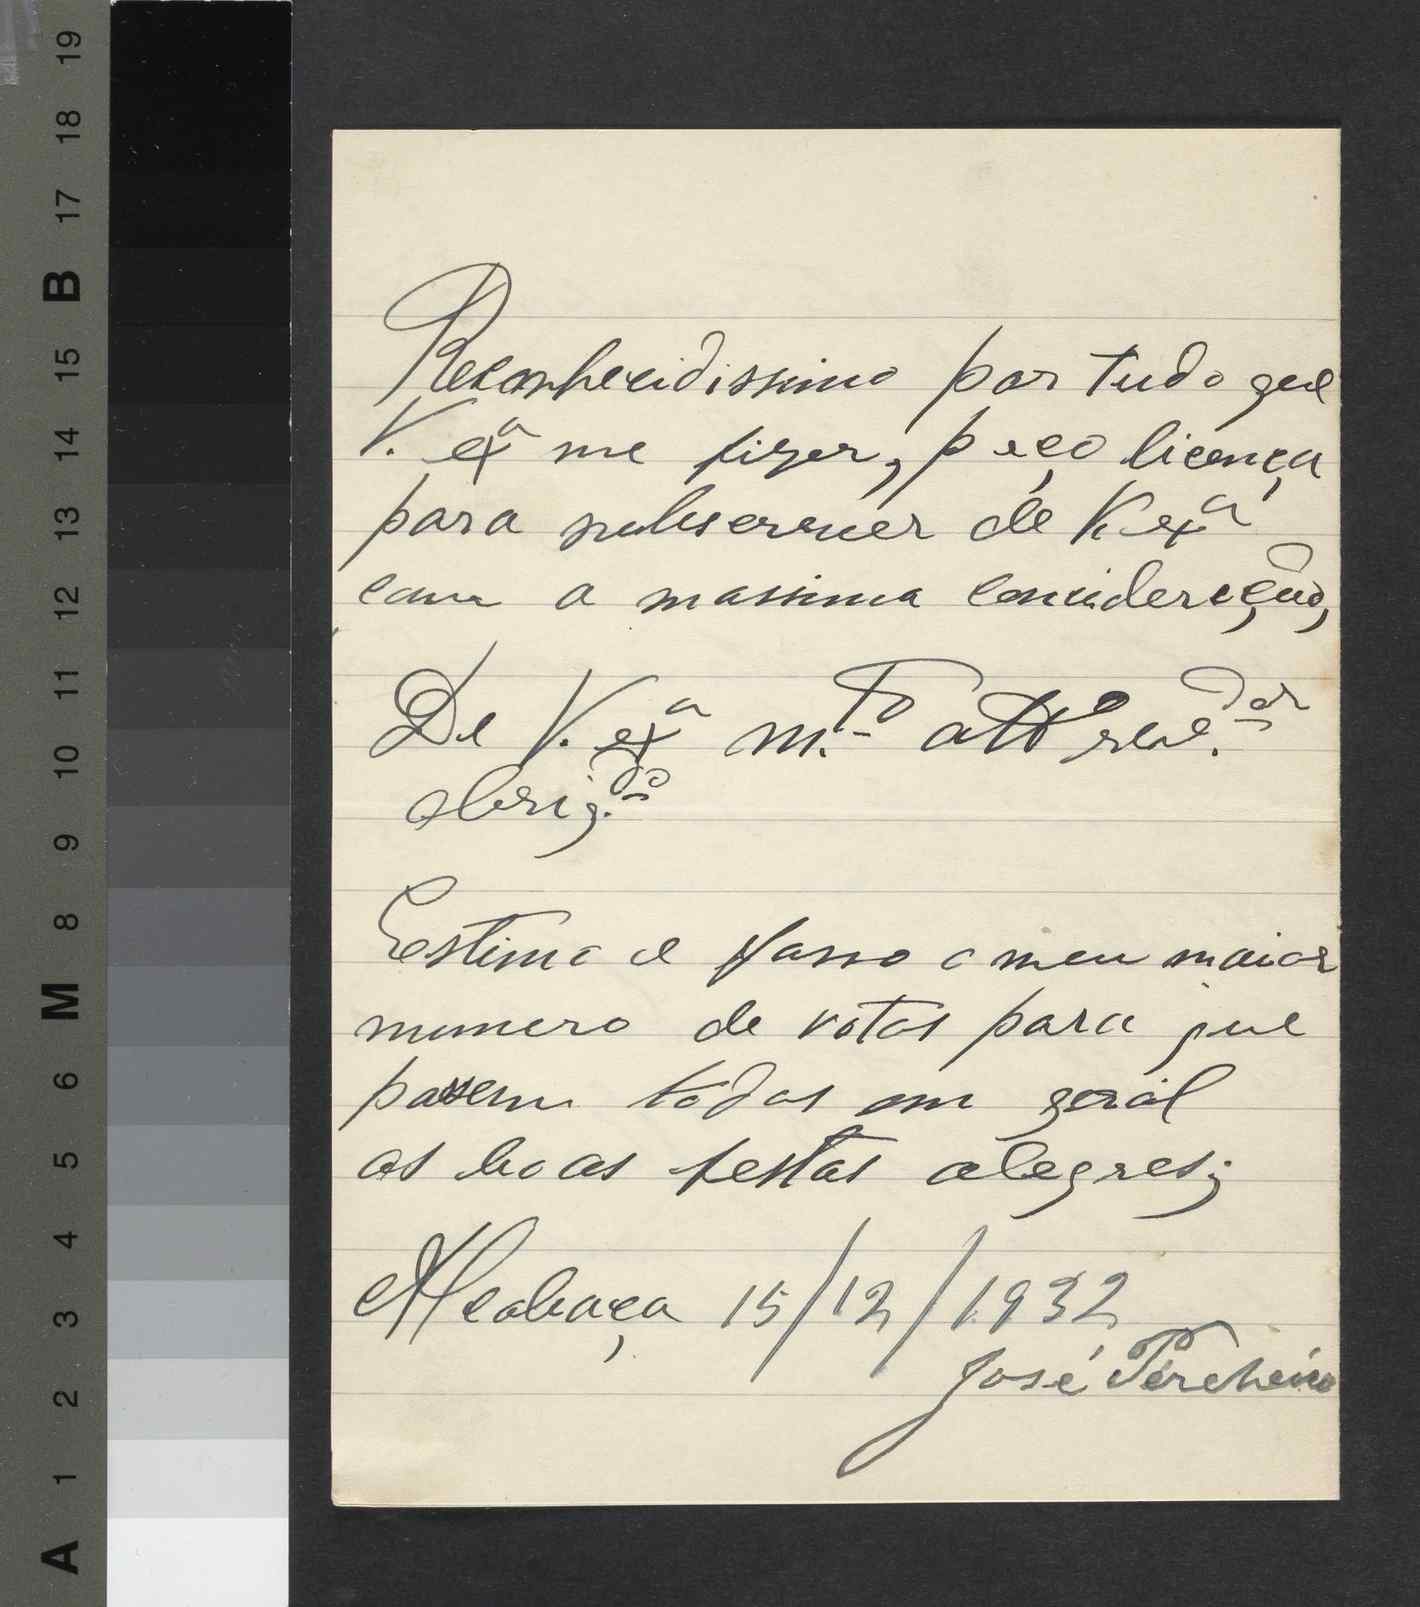 Reconhecidissimo por tudo que
V. exª me fizer, peço licença
para subscrever de V. exª
com a massima concideração,
De V. exª m.to attº
obrig.do
Estimo e fasso o meu maior
numero de votos para que
passem todos em geral
as boas festas alegres;
Alcobaça 15/12/1932
José
A 1 2 3 4 5 6 M 8 9 10 11 12 13 14 15 B 17 18 19